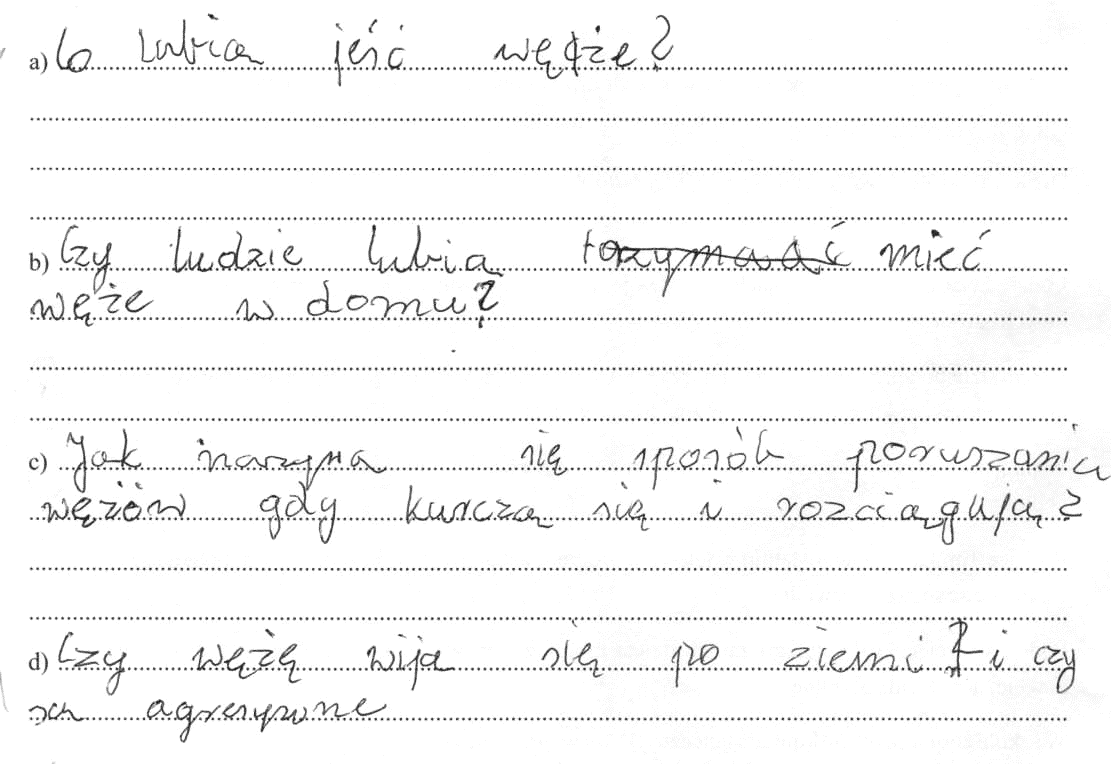 a) Co lubią jeść węże?
b) Czy ludzie lubią trzymać mieć
węże w domu?
c) Jak nazywa się sposób poruszania
wężów gdy kurczą się i rozciągują?
d) Czy wężę wiją się po ziemi? i czy
są agresywne